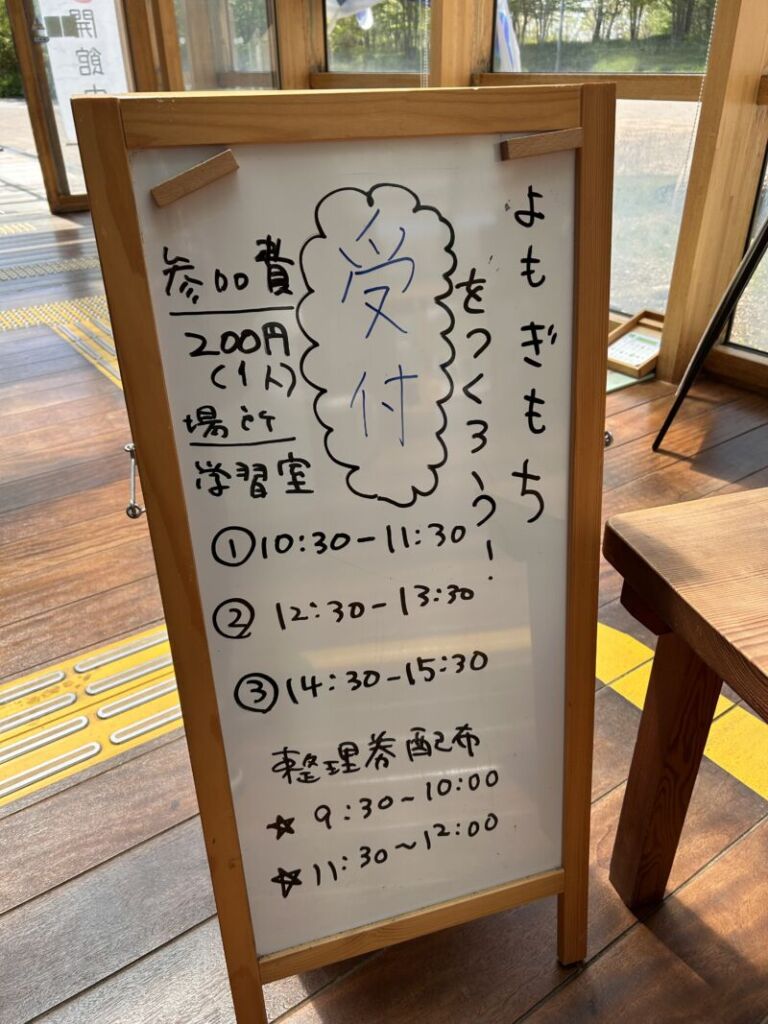 開館中
よもぎもち
をつくろう!
受付
参加費
200円
(1人)
場所
学習室
①10:30-11:30
② 12:30-13:30
③14:30-15:30
整理券配布
☆ 9:30~10:00
☆ 11:30~12:00